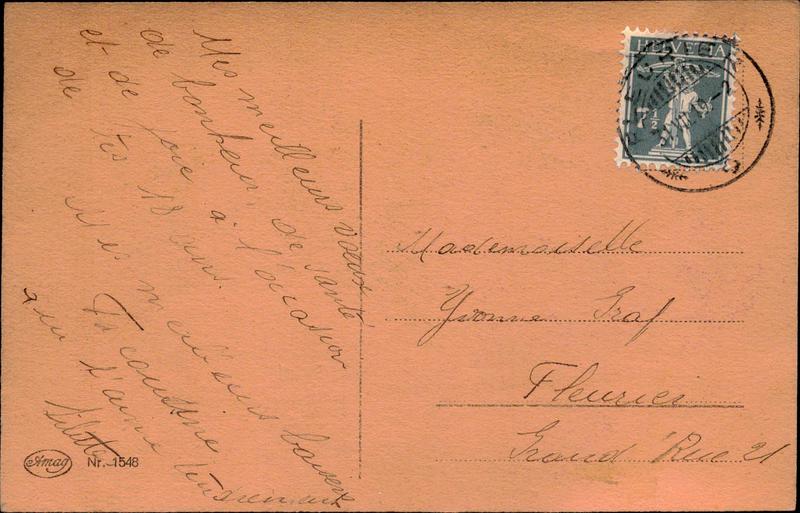 Mes meilleurs vœux
de bonheur, de santé
et de joie à l'occasion
de tes 18 ans.
Mes meilleurs baisers
Ta cousine
qui t'aime tendrement
HELVETIA
7½
Mademoiselle
Yvonne Graf
Fleurier
Grand'Rue 21
Amag
Nr. 1548